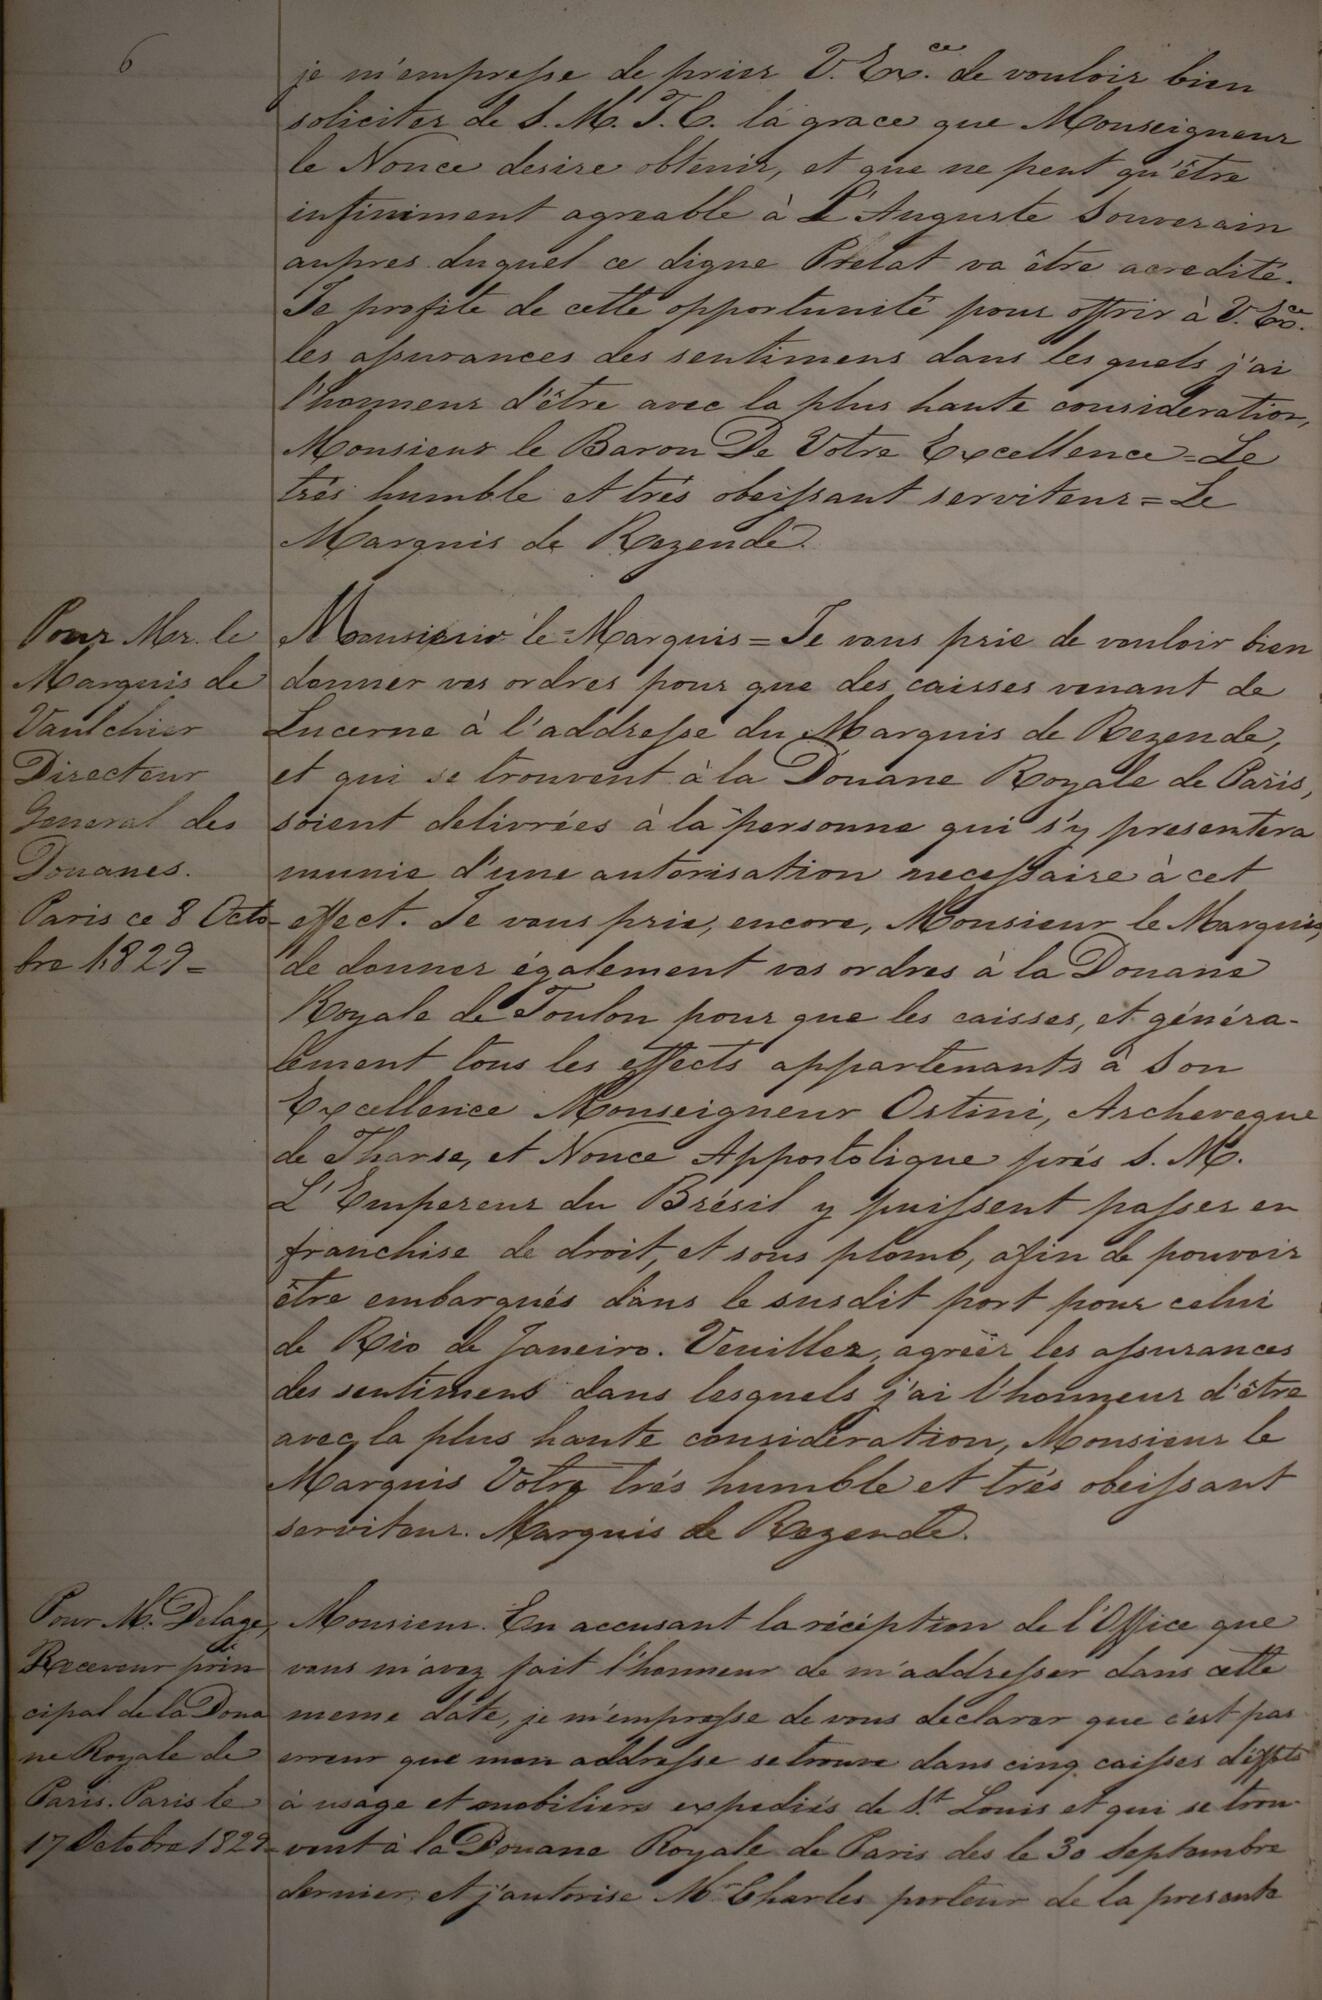 6
je m'empresse de prier V. Exce. de vouloir bien
soliciter de S. M. T. C. la grace que Monseigneur
le Nonce desire obtenir, et que ne peut qu'être
infiniment agreable à L'Auguste Souverain
aupres duquel ce digne Prélat va être acredité.
Je profite de cette opportunité pour offrir à V. Exce.
les assurances des sentimens dans les quels j'ai
l'honneur d'être avec la plus haute consideration,
Monsieur le Baron De Votre Excellence = Le
trés humble et trés obeissant serviteur = Le
Marquis de Rezende.
Pour Mr. le
Marquis de
Vaulchier
Directeur
General des
Douanes.
Paris ce 8 Octo-
bre 1829 =
Monsieur le = Marquis = Je vous prie de vouloir bien
donner vos ordres pour que des caisses venant de
Lucerne à l'addresse du Marquis de Rezende,
et qui se trouvent à la Douane Royale de Paris,
soient delivrées à la personne qui s'y presentera
munie d'une autorisation necessaire à cet
effect. Je vous prie, encore, Monsieur le Marquis,
de donner également vos ordres à la Douane
Royale de Toulon pour que les caisses, et généra-
lement tous les effects appartenants à Son
Excellence Monseigneur Ostini, Archeveque
de Tharse, et Nonce Appostolique prés S. M.
L'Empereur du Brésil y puissent passer en
franchise de droit, et sous plomb, afin de pouvoir
être embarqués dans le susdit port pour celui
de Rio de Janeiro. Veuillez, agréer les assurances
des sentimens dans lesquels j'ai l'honneur d'être
avec la plus haute considération, Monsieur le
Marquis Votre trés humble et trés obeissant
serviteur. Marquis de Rezende.
Pour Mr. Delage,
Receveur prin
cipal de la Doua
ne Royale de
Paris. Paris le
17 Octobre 1829 =
Monsieur. En accusant la récéption de l'Office que
vous m'avez fait l'honneur de m'addresser dans cette
meme date, je m'empresse de vous declarer que c'est par
erreur que mon addresse se trouve dans cinq caisses d'effets
à usage et mobiliers expediés de St. Louis et qui se trou-
vent à la Douane Royale de Paris des le 30 Septembre
dernier, et j'autorise Mr. Charles porteur de la presente